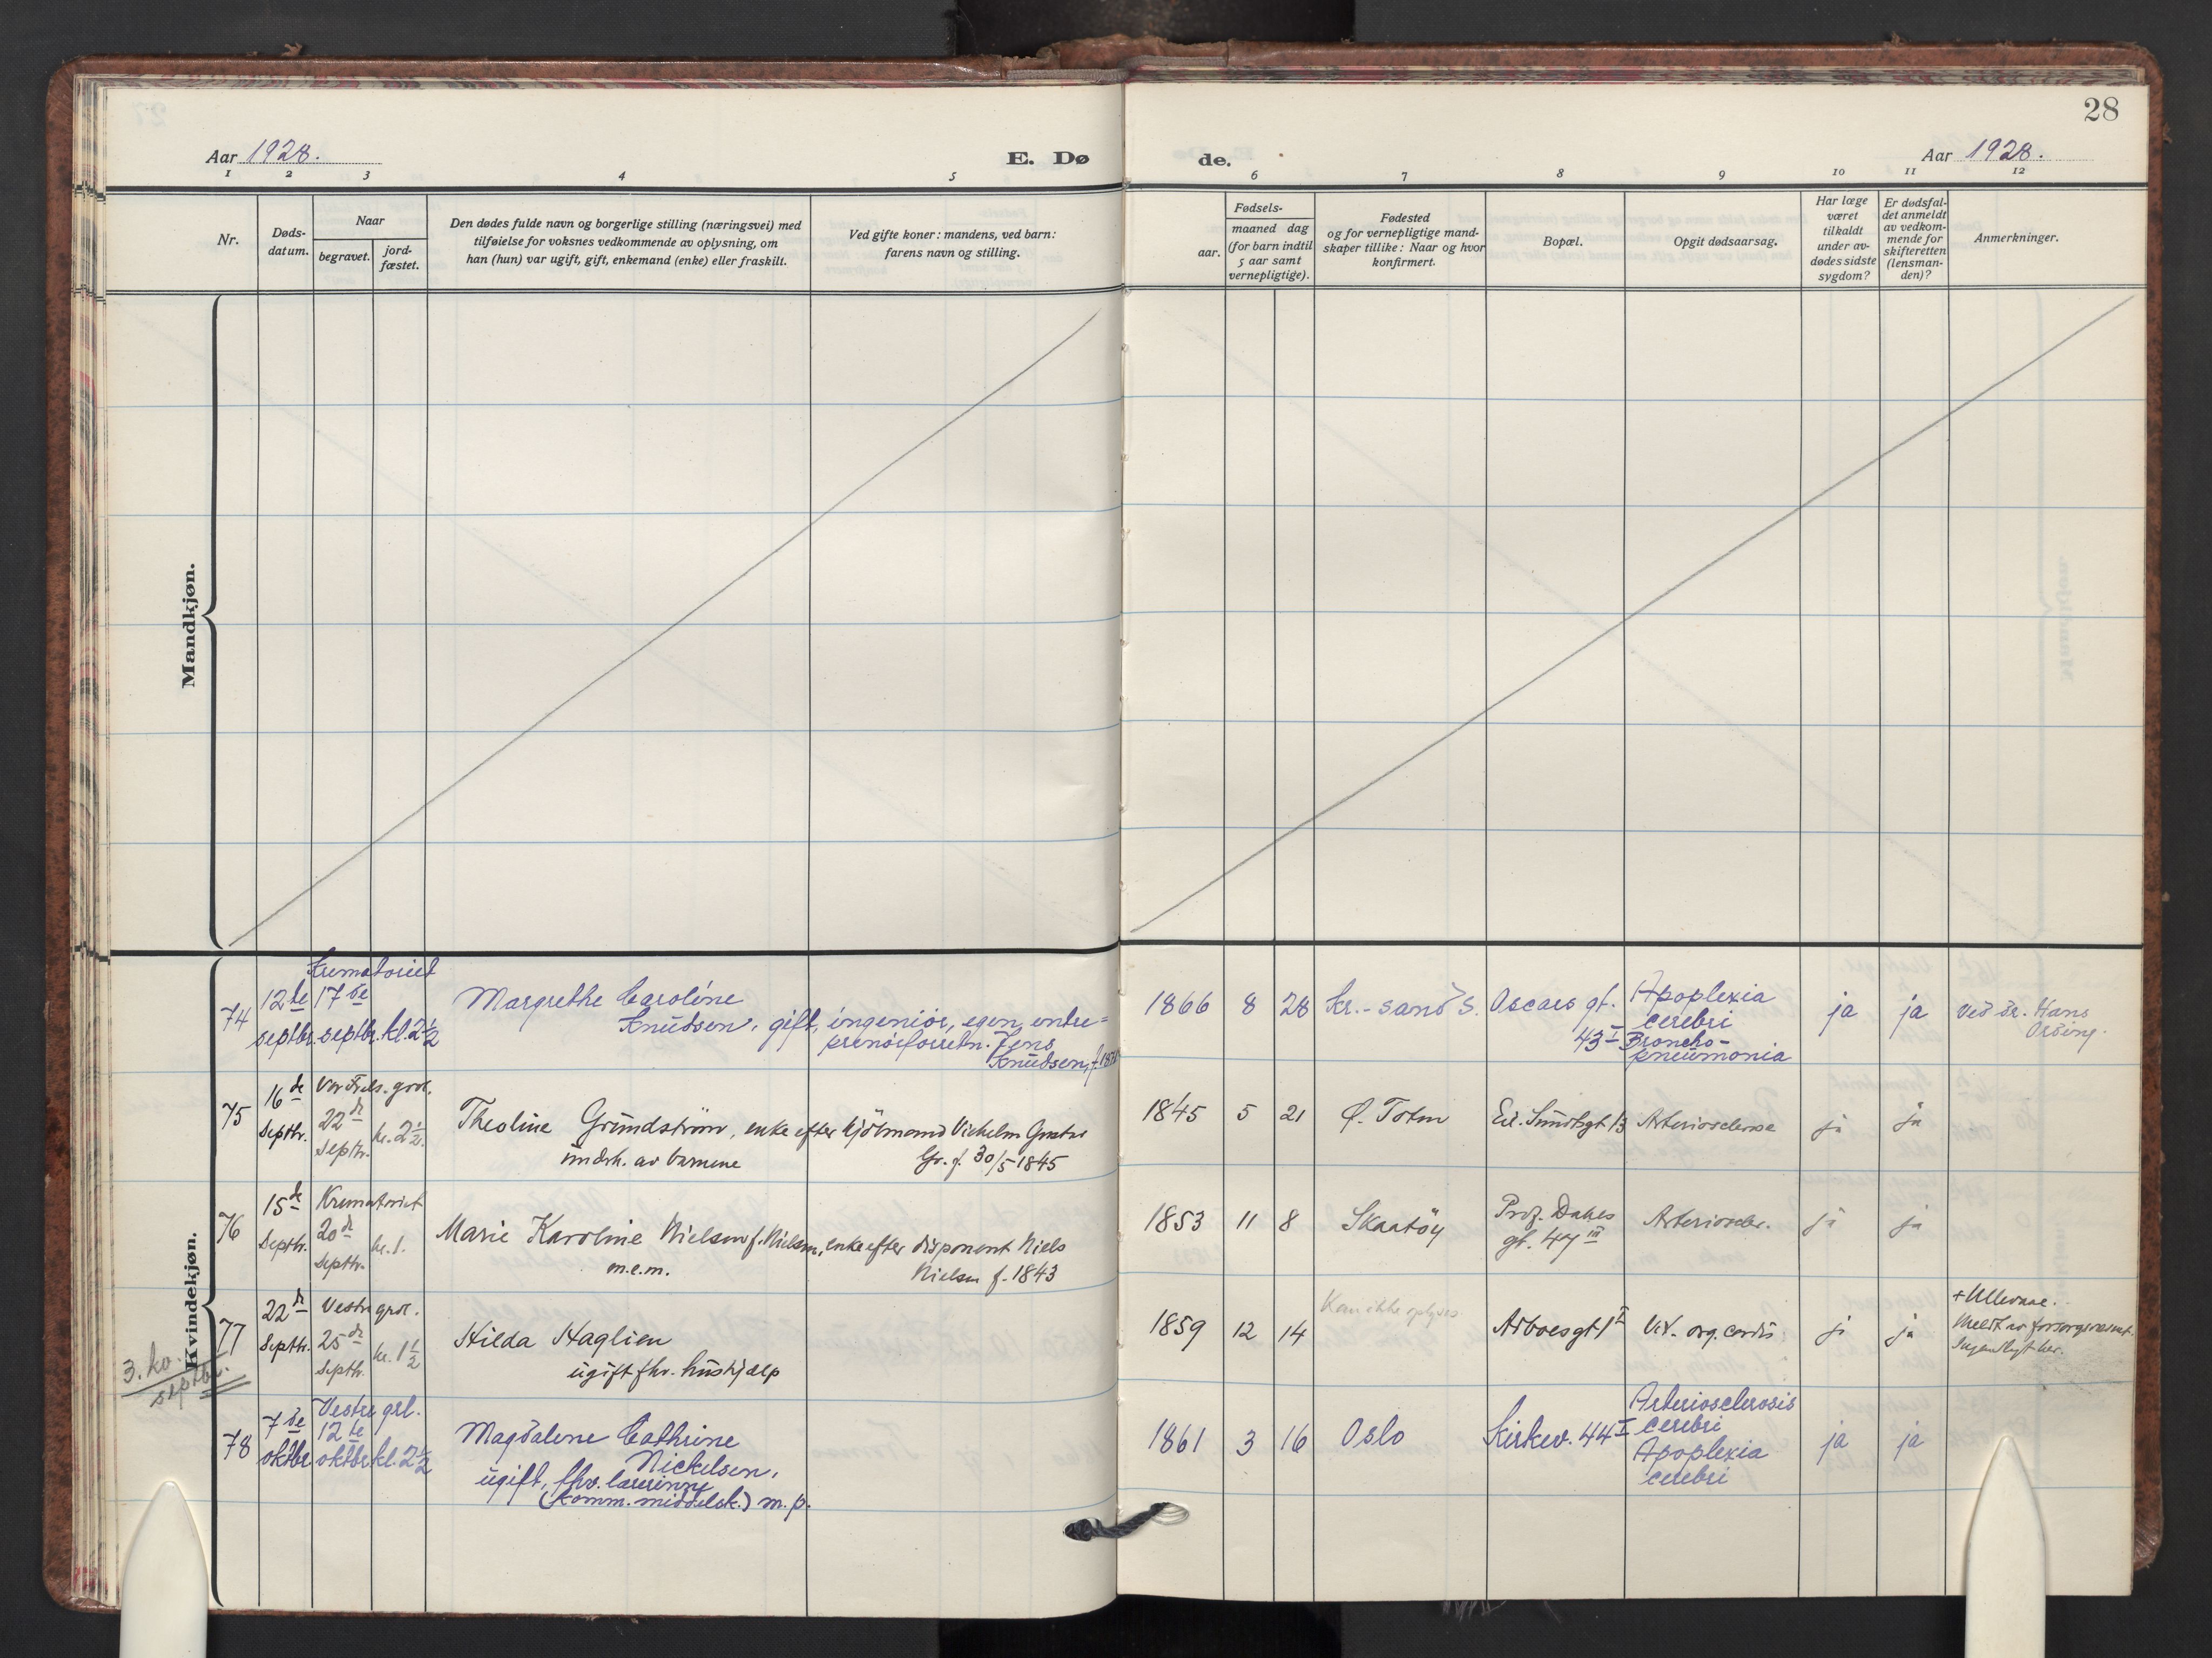 28
Aar 1928.
E. Dø
de.
Aar 1928.
1 2 3 4 5 6 7 8 9 10 11 12
Nr.
Døds-
datum.
Naar
begravet.
jord-
fæstet.
Den dødes fulde navn og borgerlige stilling (næringsvei) med
tilføielse for voksnes vedkommende av oplysning, om
han (hun) var ugift, gift, enkemand (enke) eller fraskilt.
Ved gifte koner: mandens, ved barn:
farens navn og stilling.
Fødsels-
aar.
maaned dag
(for barn indtil
5 aar samt
vernepligtige).
Fødested
og for vernepligtige mand-
skaper tillike: Naar og hvor
konfirmert.
Bopæl.
Opgit dødsaarsag.
Har læge
været
tilkaldt
under av-
dødes sidste
sygdom?
Er dødsfal-
det anmeldt
av vedkom-
mende for
skifteretten
(lensman-
den)?
Anmerkninger.
Mandkjøn.
Kvindekjøn.
74
12te
septbr.
Krematoriet
17de
septbr. kl. 2½
Margrethe Caroline
Knudsen, gift, ingeniør, egen entre=
prenørforretn. Jens
Knudsen, f.
1866 8 28
Kr.-sand S.
Oscars gt.
43 I
Apoplexia
cerebri
Broncho-
pneumonia
ja
ja
Ved dr. Hans
75
16de
Septbr.
Vor Frels. grol.
22de
Septbr.
kl. 2½.
Theoline Grundstrøm, enke efter kjøbmand Vilhelm Gustav
undsk. av barnene
Gr. f. 30/5 1845
1845 5 21
Ø. Toten
Eil. Sundtsgt 13
Arteriosclerose
ja
ja
76
15de
Septbr.
Krematoriet
20de
Septbr.
kl. 1.
Marie Karoline Nielsen f. Nielsen, enke efter disponent Niels
m.e.m.
Nielsen f. 1843
1853 11 8
Skaatøy
Prof. Dahls
gt. 47 III
Arterioscler.
ja
ja
77
22de
Septbr.
Vestre grol.
25de
Septbr.
kl. 1½
Hilda Haglien
ugift fhv. hushjælp
1859 12 14
Kan ikke oplyses
Arboesgt 1 II
Vit. org. cordis
ja
ja
+ Ullevaal.
Meldt av forsorgsvesnt.
3. kv.
septbr.
78
7de
oktbr.
Vestre grl.
12te
oktbr. kl. 2½
Magdalene Cathrine
Nickelsen,
ugift, fhv. lærerinne
(komm. middelsk.) m. p.
1861 3 16
Oslo
Kirkev. 44 I
Arteriosclerosis
cerebri
Apoplexia
cerebri
ja
ja